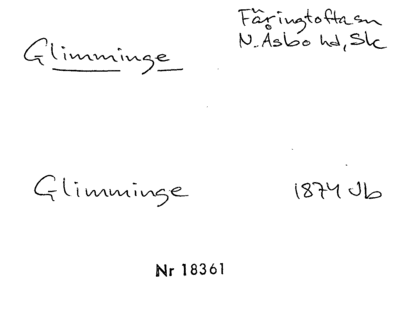 Glimminge
Färingtofta sn
N. Åsbo hd, Sk
Glimminge
1874 Jb
Nr 18361